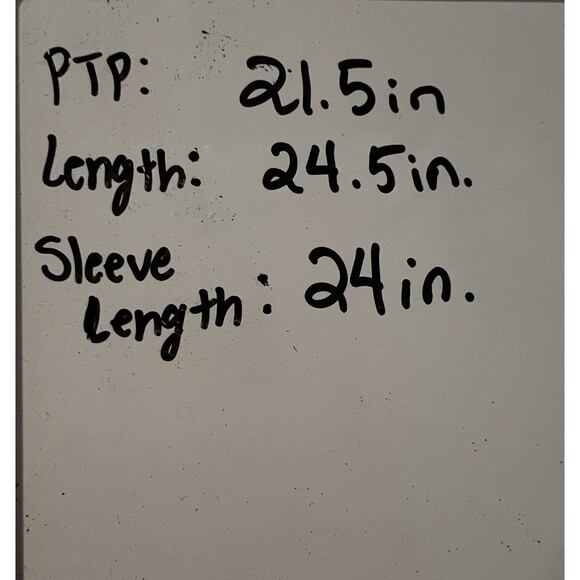 PTP: 21.5in
Length: 24.5in.
Sleeve
Length: 24in.